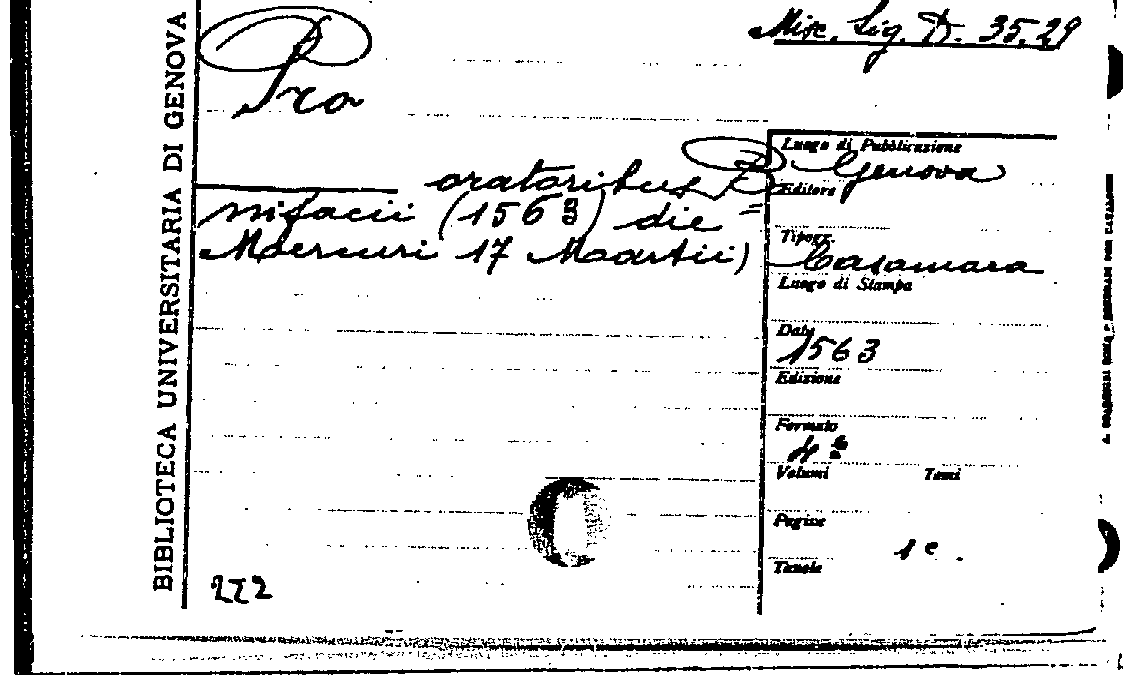 BIBLIOTECA UNIVERSITARIA DI GENOVA
Misc. Lig. D. 35.29
Pro
oratoribus Bo=
nifacii (1563) die
Mercuri 17 Martii)
Luogo di Pubblicazione
Genova
Editore
Tipogr.
Casamara
Luogo di Stampa
Data
1563
Edizione
Formato
4º
Volumi Tomi
Pagine
1 c.
Tavole